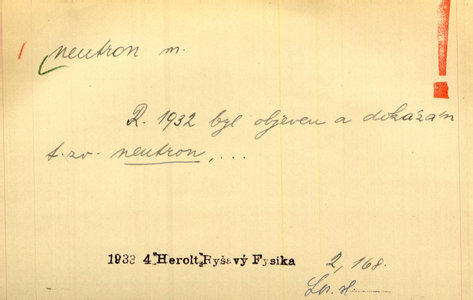 neutron m.
R. 1932 byl objeven a dokázán
t. zv. neutron, ...
1933 4 Herolt, Ryšavý Fysika
2, 168.